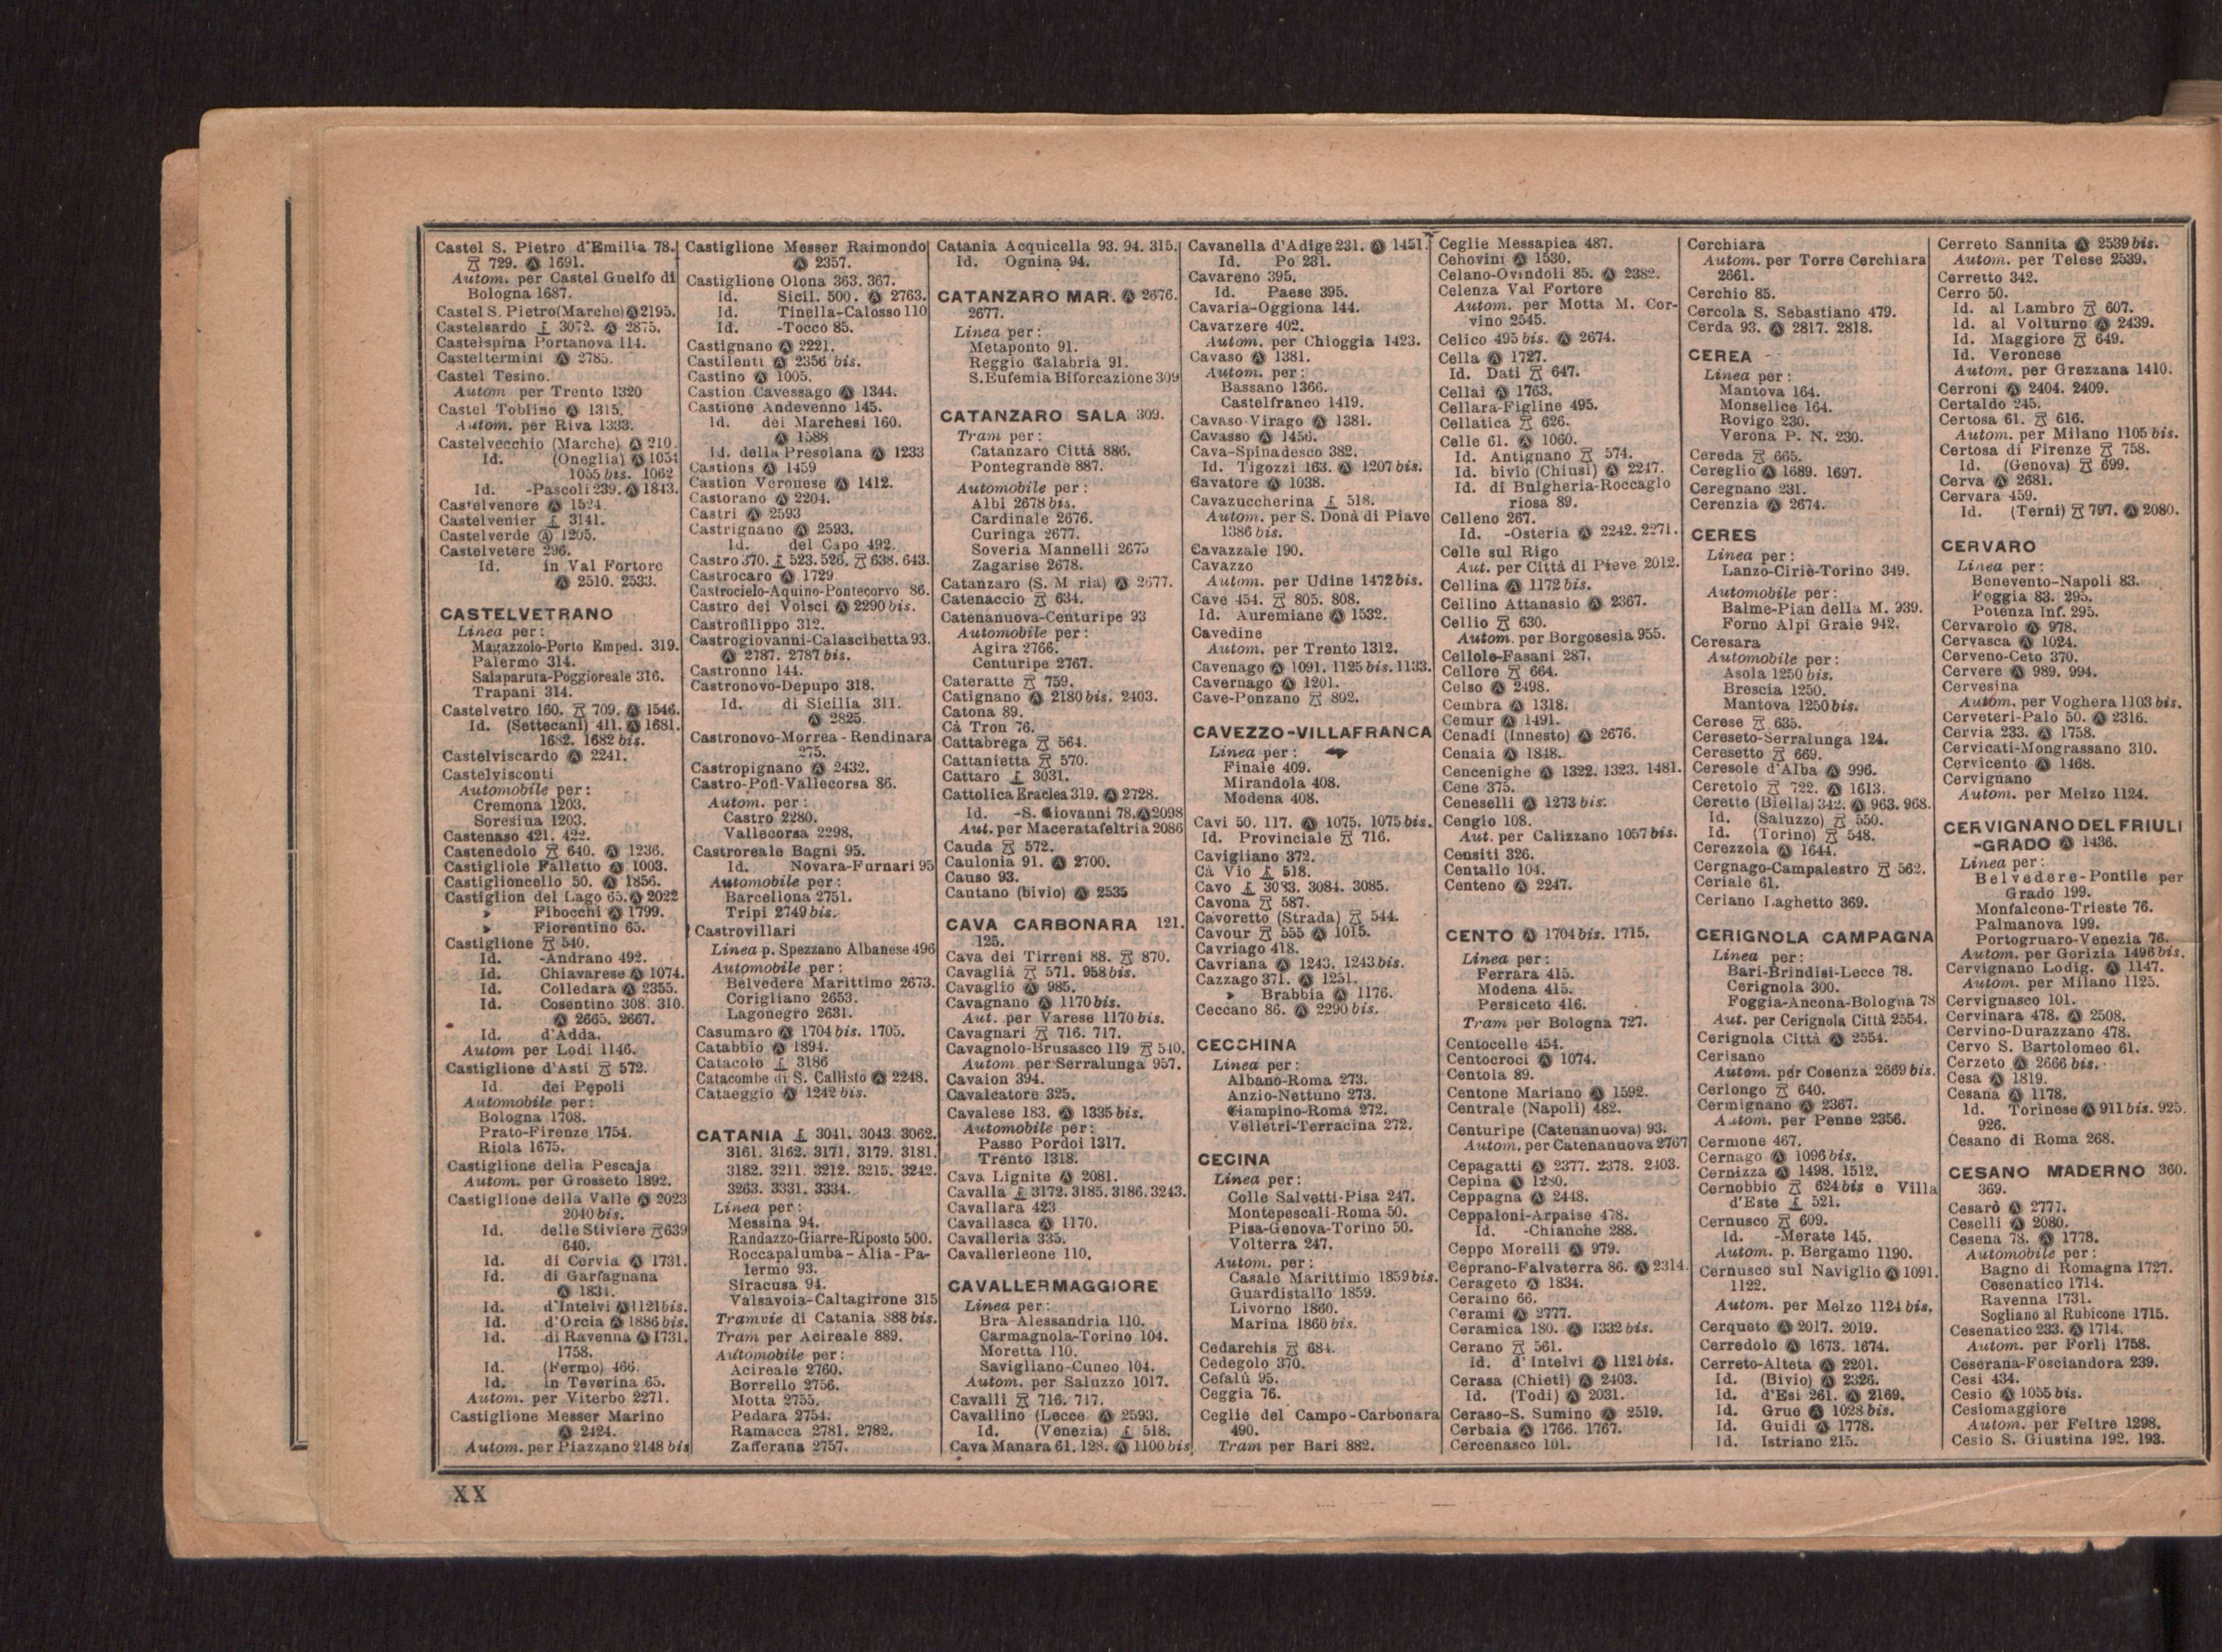 Castel S. Pietro d'Emilia 78.
729. Ⓐ 1691.
Autom. per Castel Guelfo di
Bologna 1687.
Castel S. Pietro (Marche) Ⓐ 2195.
Castelsardo 3072. Ⓐ 2875.
Castelspina Portanova 114.
Casteltermini Ⓐ 2785.
Castel Tesino.
Autom per Trento 1320
Castel Toblino Ⓐ 1315.
Autom. per Riva 1333.
Castelvecchio (Marche) Ⓐ 210.
Id. (Oneglia) Ⓐ 1054
1055 bis. 1062
Id. -Pascoli 239. Ⓐ 1843.
Castelvenere Ⓐ 1524.
Castelvenier 3141.
Castelverde Ⓐ 1205.
Castelvetere 296.
Id. in Val Fortore
Ⓐ 2510. 2533.
CASTELVETRANO
Linea per:
Magazzolo-Porto Emped. 319.
Palermo 314.
Salaparuta-Poggioreale 316.
Trapani 314.
Castelvetro 160. 709. Ⓐ 1546.
Id. (Settecani) 411. Ⓐ 1681.
1682. 1682 bis.
Castelviscardo Ⓐ 2241.
Castelvisconti
Automobile per:
Cremona 1203.
Soresina 1203.
Castenaso 421. 422.
Castenedolo 640. Ⓐ 1236.
Castigliole Falletto Ⓐ 1003.
Castiglioncello 50. Ⓐ 1856.
Castiglion del Lago 65. Ⓐ 2022
» Fibocchi Ⓐ 1799.
» Fiorentino 65.
Castiglione 540.
Id. -Andrano 492.
Id. Chiavarese Ⓐ 1074.
Id. Colledara Ⓐ 2355.
Id. Cosentino 308. 310.
Ⓐ 2665. 2667.
Id. d'Adda.
Autom per Lodi 1146.
Castiglione d'Asti 572.
Id. dei Pepoli
Automobile per:
Bologna 1708.
Prato-Firenze 1754.
Riola 1675.
Castiglione della Pescaja
Autom. per Grosseto 1892.
Castiglione della Valle Ⓐ 2023
2040 bis.
Id. delle Stiviere 639
640.
Id. di Cervia Ⓐ 1731.
Id. di Garfagnana
Ⓐ 1831.
Id. d'Intelvi Ⓐ 1121 bis.
Id. d'Orcia Ⓐ 1886 bis.
Id. di Ravenna Ⓐ 1731.
1758.
Id. (Fermo) 466.
Id. in Teverina 65.
Autom. per Viterbo 2271.
Castiglione Messer Marino
Ⓐ 2424.
Autom. per Piazzano 2148 bis
Castiglione Messer Raimondo
Ⓐ 2357.
Castiglione Olona 363. 367.
Id. Sicil. 500. Ⓐ 2763.
Id. Tinella-Calosso 110
Id. -Tocco 85.
Castignano Ⓐ 2221.
Castilenti Ⓐ 2356 bis.
Castino Ⓐ 1005.
Castion Cavessago Ⓐ 1344.
Castione Andevenno 145.
Id. dei Marchesi 160.
Ⓐ 1588
Id. della Presolana Ⓐ 1233
Castions Ⓐ 1459
Castion Veronese Ⓐ 1412.
Castorano Ⓐ 2204.
Castri Ⓐ 2593
Castrignano Ⓐ 2593.
Id. del Capo 492.
Castro 370. 523. 526. 638. 643.
Castrocaro Ⓐ 1729
Castrocielo-Aquino-Pontecorvo 86.
Castro dei Volsci Ⓐ 2290 bis.
Castrofilippo 312.
Castrogiovanni-Calascibetta 93.
Ⓐ 2787. 2787 bis.
Castronno 144.
Castronovo-Depupo 318.
Id. di Sicilia 311.
Ⓐ 2825.
Castronovo-Morrea-Rendinara
275.
Castropignano Ⓐ 2432.
Castro-Pofi-Vallecorsa 86.
Autom. per:
Castro 2280.
Vallecorsa 2298.
Castroreale Bagni 95.
Id. Novara-Furnari 95
Automobile per:
Barcellona 2751.
Tripi 2749 bis.
Castrovillari
Linea p. Spezzano Albanese 496
Automobile per:
Belvedere Marittimo 2673.
Corigliano 2653.
Lagonegro 2631.
Casumaro Ⓐ 1704 bis. 1705.
Catabbio Ⓐ 1894.
Catacolo 3186
Catacombe di S. Callisto Ⓐ 2248.
Cataeggio Ⓐ 1242 bis.
CATANIA 3041. 3043. 3062.
3161. 3162. 3171. 3179. 3181.
3182. 3211. 3212. 3215. 3242.
3263. 3331. 3334.
Linea per:
Messina 94.
Randazzo-Giarre-Riposto 500.
Roccapalumba-Alia-Pa-
lermo 93.
Siracusa 94.
Valsavoia-Caltagirone 315
Tramvie di Catania 888 bis.
Tram per Acireale 889.
Automobile per:
Acireale 2760.
Borrello 2756.
Motta 2755.
Pedara 2754.
Ramacca 2781. 2782.
Zafferana 2757.
Catania Acquicella 93. 94. 315.
Id. Ognina 94.
CATANZARO MAR. Ⓐ 2676.
2677.
Linea per:
Metaponto 91.
Reggio Calabria 91.
S. Eufemia Biforcazione 309
CATANZARO SALA 309.
Tram per:
Catanzaro Città 886.
Pontegrande 887.
Automobile per:
Albi 2678 bis.
Cardinale 2676.
Curinga 2677.
Soveria Mannelli 2675
Zagarise 2678.
Catanzaro (S. M ria) Ⓐ 2677.
Catenaccio 634.
Catenanuova-Centuripe 93
Automobile per:
Agira 2766.
Centuripe 2767.
Cateratte 759.
Catignano Ⓐ 2180 bis. 2403.
Catona 89.
Cà Tron 76.
Cattabrega 564.
Cattanietta 570.
Cattaro 3031.
Cattolica Eraclea 319. Ⓐ 2728.
Id. -S. Giovanni 78. Ⓐ 2098
Aut. per Maceratafeltria 2086
Cauda 572.
Caulonia 91. Ⓐ 2700.
Causo 93.
Cautano (bivio) Ⓐ 2535
CAVA CARBONARA 121.
125.
Cava dei Tirreni 88. 870.
Cavaglià 571. 958 bis.
Cavaglio Ⓐ 985.
Cavagnano Ⓐ 1170 bis.
Aut. per Varese 1170 bis.
Cavagnari 716. 717.
Cavagnolo-Brusasco 119 540.
Autom. per Serralunga 957.
Cavaion 394.
Cavalcatore 325.
Cavalese 183. Ⓐ 1335 bis.
Automobile per:
Passo Pordoi 1317.
Trento 1318.
Cava Lignite Ⓐ 2081.
Cavalla 3172. 3185. 3186. 3243.
Cavallara 423
Cavallasca Ⓐ 1170.
Cavalleria 335.
Cavallerleone 110.
CAVALLERMAGGIORE
Linea per:
Bra-Alessandria 110.
Carmagnola-Torino 104.
Moretta 110.
Savigliano-Cuneo 104.
Autom. per Saluzzo 1017.
Cavalli 716. 717.
Cavallino (Lecce Ⓐ 2593.
Id. (Venezia) 518.
Cava Manara 61. 128. Ⓐ 1100 bis
Cavanella d'Adige 231. Ⓐ 1451.
Id. Po 231.
Cavareno 395.
Id. Paese 395.
Cavaria-Oggiona 144.
Cavarzere 402.
Autom. per Chioggia 1423.
Cavaso Ⓐ 1381.
Autom. per:
Bassano 1366.
Castelfranco 1419.
Cavaso-Virago Ⓐ 1381.
Cavasso Ⓐ 1456.
Cava-Spinadesco 382.
Id. Tigozzi 163. Ⓐ 1207 bis.
Cavatore Ⓐ 1038.
Cavazuccherina 518.
Autom. per S. Donà di Piave
1386 bis.
Cavazzale 190.
Cavazzo
Autom. per Udine 1472 bis.
Cave 454. 805. 808.
Id. Auremiane Ⓐ 1532.
Cavedine
Autom. per Trento 1312.
Cavenago Ⓐ 1091. 1125 bis. 1133.
Cavernago Ⓐ 1201.
Cave-Ponzano 802.
CAVEZZO-VILLAFRANCA
Linea per:
Finale 409.
Mirandola 408.
Modena 408.
Cavi 50. 117. Ⓐ 1075. 1075 bis.
Id. Provinciale 716.
Cavigliano 372.
Cà Vio 518.
Cavo 3083. 3084. 3085.
Cavona 587.
Cavoretto (Strada) 544.
Cavour 555 Ⓐ 1015.
Cavriago 418.
Cavriana Ⓐ 1243. 1243 bis.
Cazzago 371. Ⓐ 1251.
» Brabbia Ⓐ 1176.
Ceccano 86. Ⓐ 2290 bis.
CECCHINA
Linea per:
Albano-Roma 273.
Anzio-Nettuno 273.
Ciampino-Roma 272.
Velletri-Terracina 272.
CECINA
Linea per:
Colle Salvetti-Pisa 247.
Montepescali-Roma 50.
Pisa-Genova-Torino 50.
Volterra 247.
Autom. per:
Casale Marittimo 1859 bis.
Guardistallo 1859.
Livorno 1860.
Marina 1860 bis.
Cedarchis 684.
Cedegolo 370.
Cefalù 95.
Ceggia 76.
Ceglie del Campo-Carbonara
490.
Tram per Bari 882.
Ceglie Messapica 487.
Cehovini Ⓐ 1530.
Celano-Ovindoli 85. Ⓐ 2382.
Celenza Val Fortore
Autom. per Motta M. Cor-
vino 2545.
Celico 495 bis. Ⓐ 2674.
Cella Ⓐ 1727.
Id. Dati 647.
Cellai Ⓐ 1763.
Cellara-Figline 495.
Cellatica 626.
Celle 61. Ⓐ 1060.
Id. Antignano 574.
Id. bivio (Chiusi) Ⓐ 2247.
Id. di Bulgheria-Roccaglo
riosa 89.
Celleno 267.
Id. -Osteria Ⓐ 2242. 2271.
Celle sul Rigo
Aut. per Città di Pieve 2012.
Cellina Ⓐ 1172 bis.
Cellino Attanasio Ⓐ 2367.
Cellio 630.
Autom. per Borgosesia 955.
Cellole-Fasani 287.
Cellore 664.
Celso Ⓐ 2498.
Cembra Ⓐ 1318.
Cemur Ⓐ 1491.
Cenadi (Innesto) Ⓐ 2676.
Cenaia Ⓐ 1848.
Cencenighe Ⓐ 1322. 1323. 1481.
Cene 375.
Ceneselli Ⓐ 1273 bis.
Cengio 108.
Aut. per Calizzano 1057 bis.
Censiti 326.
Centallo 104.
Centeno Ⓐ 2247.
CENTO Ⓐ 1704 bis. 1715.
Linea per:
Ferrara 415.
Modena 415.
Persiceto 416.
Tram per Bologna 727.
Centocelle 454.
Centocroci Ⓐ 1074.
Centola 89.
Centone Mariano Ⓐ 1592.
Centrale (Napoli) 482.
Centuripe (Catenanuova) 93.
Autom. per Catenanuova 2767
Cepagatti Ⓐ 2377. 2378. 2403.
Cepina Ⓐ 1280.
Ceppagna Ⓐ 2448.
Ceppaloni-Arpaise 478.
Id. -Chianche 288.
Ceppo Morelli Ⓐ 979.
Ceprano-Falvaterra 86. Ⓐ 2314.
Cerageto Ⓐ 1834.
Ceraino 66.
Cerami Ⓐ 2777.
Ceramica 180. Ⓐ 1332 bis.
Cerano 561.
Id. d'Intelvi Ⓐ 1121 bis.
Cerasa (Chieti) Ⓐ 2403.
Id. (Todi) Ⓐ 2031.
Ceraso-S. Sumino Ⓐ 2519.
Cerbaia Ⓐ 1766. 1767.
Cercenasco 101.
Cerchiara
Autom. per Torre Cerchiara
2661.
Cerchio 85.
Cercola S. Sebastiano 479.
Cerda 93. Ⓐ 2817. 2818.
CEREA
Linea per:
Mantova 164.
Monselice 164.
Rovigo 230.
Verona P. N. 230.
Cereda 665.
Cereglio Ⓐ 1689. 1697.
Ceregnano 231.
Cerenzia Ⓐ 2674.
CERES
Linea per:
Lanzo-Ciriè-Torino 349.
Automobile per:
Balme-Pian della M. 939.
Forno Alpi Graie 942.
Ceresara
Automobile per:
Asola 1250 bis.
Brescia 1250.
Mantova 1250 bis.
Cerese 635.
Cereseto-Serralunga 124.
Ceresetto 669.
Ceresole d'Alba Ⓐ 996.
Ceretolo 722. Ⓐ 1613.
Ceretto (Biella) 342. Ⓐ 963. 968.
Id. (Saluzzo) 550.
Id. (Torino) 548.
Cerezzola Ⓐ 1644.
Cergnago-Campalestro 562.
Ceriale 61.
Ceriano Laghetto 369.
CERIGNOLA CAMPAGNA
Linea per:
Bari-Brindisi-Lecce 78.
Cerignola 300.
Foggia-Ancona-Bologna 78
Aut. per Cerignola Città 2554.
Cerignola Città Ⓐ 2554.
Cerisano
Autom. per Cosenza 2669 bis.
Cerlongo 640.
Cermignano Ⓐ 2367.
Autom. per Penne 2356.
Cermone 467.
Cernago Ⓐ 1096 bis.
Cernizza Ⓐ 1498. 1512.
Cernobbio 624 bis e Villa
d'Este 521.
Cernusco 609.
Id. -Merate 145.
Autom. p. Bergamo 1190.
Cernusco sul Naviglio Ⓐ 1091.
1122.
Autom. per Melzo 1124 bis.
Cerqueto Ⓐ 2017. 2019.
Cerredolo Ⓐ 1673. 1674.
Cerreto-Alteta Ⓐ 2201.
Id. (Bivio) Ⓐ 2326.
Id. d'Esi 261. Ⓐ 2169.
Id. Grue Ⓐ 1028 bis.
Id. Guidi Ⓐ 1778.
Id. Istriano 215.
Cerreto Sannita Ⓐ 2539 bis.
Autom. per Telese 2539.
Cerretto 342.
Cerro 50.
Id. al Lambro 607.
Id. al Volturno Ⓐ 2439.
Id. Maggiore 649.
Id. Veronese
Autom. per Grezzana 1410.
Cerroni Ⓐ 2404. 2409.
Certaldo 245.
Certosa 61. 616.
Autom. per Milano 1105 bis.
Certosa di Firenze 758.
Id. (Genova) 699.
Cerva Ⓐ 2681.
Cervara 459.
Id. (Terni) 797. Ⓐ 2080.
CERVARO
Linea per:
Benevento-Napoli 83.
Foggia 83. 295.
Potenza Inf. 295.
Cervarolo Ⓐ 978.
Cervasca Ⓐ 1024.
Cerveno-Ceto 370.
Cervere Ⓐ 989. 994.
Cervesina
Autom. per Voghera 1103 bis.
Cerveteri-Palo 50. Ⓐ 2316.
Cervia 233. Ⓐ 1758.
Cervicati-Mongrassano 310.
Cervicento Ⓐ 1468.
Cervignano
Autom. per Melzo 1124.
CERVIGNANO DEL FRIULI
-GRADO Ⓐ 1436.
Linea per:
Belvedere-Pontile per
Grado 199.
Monfalcone-Trieste 76.
Palmanova 199.
Portogruaro-Venezia 76.
Autom. per Gorizia 1496 bis.
Cervignano Lodig. Ⓐ 1147.
Autom. per Milano 1125.
Cervignasco 101.
Cervinara 478. Ⓐ 2508.
Cervino-Durazzano 478.
Cervo S. Bartolomeo 61.
Cerzeto Ⓐ 2666 bis.
Cesa Ⓐ 1819.
Cesana Ⓐ 1178.
Id. Torinese Ⓐ 911 bis. 925.
926.
Cesano di Roma 268.
CESANO MADERNO 360.
369.
Cesarò Ⓐ 2777.
Ceselli Ⓐ 2080.
Cesena 78. Ⓐ 1778.
Automobile per:
Bagno di Romagna 1727.
Cesenatico 1714.
Ravenna 1731.
Sogliano al Rubicone 1715.
Cesenatico 233. Ⓐ 1714.
Autom. per Forlì 1758.
Ceserana-Fosciandora 239.
Cesi 434.
Cesio Ⓐ 1055 bis.
Cesiomaggiore
Autom. per Feltre 1298.
Cesio S. Giustina 192. 193.
XX